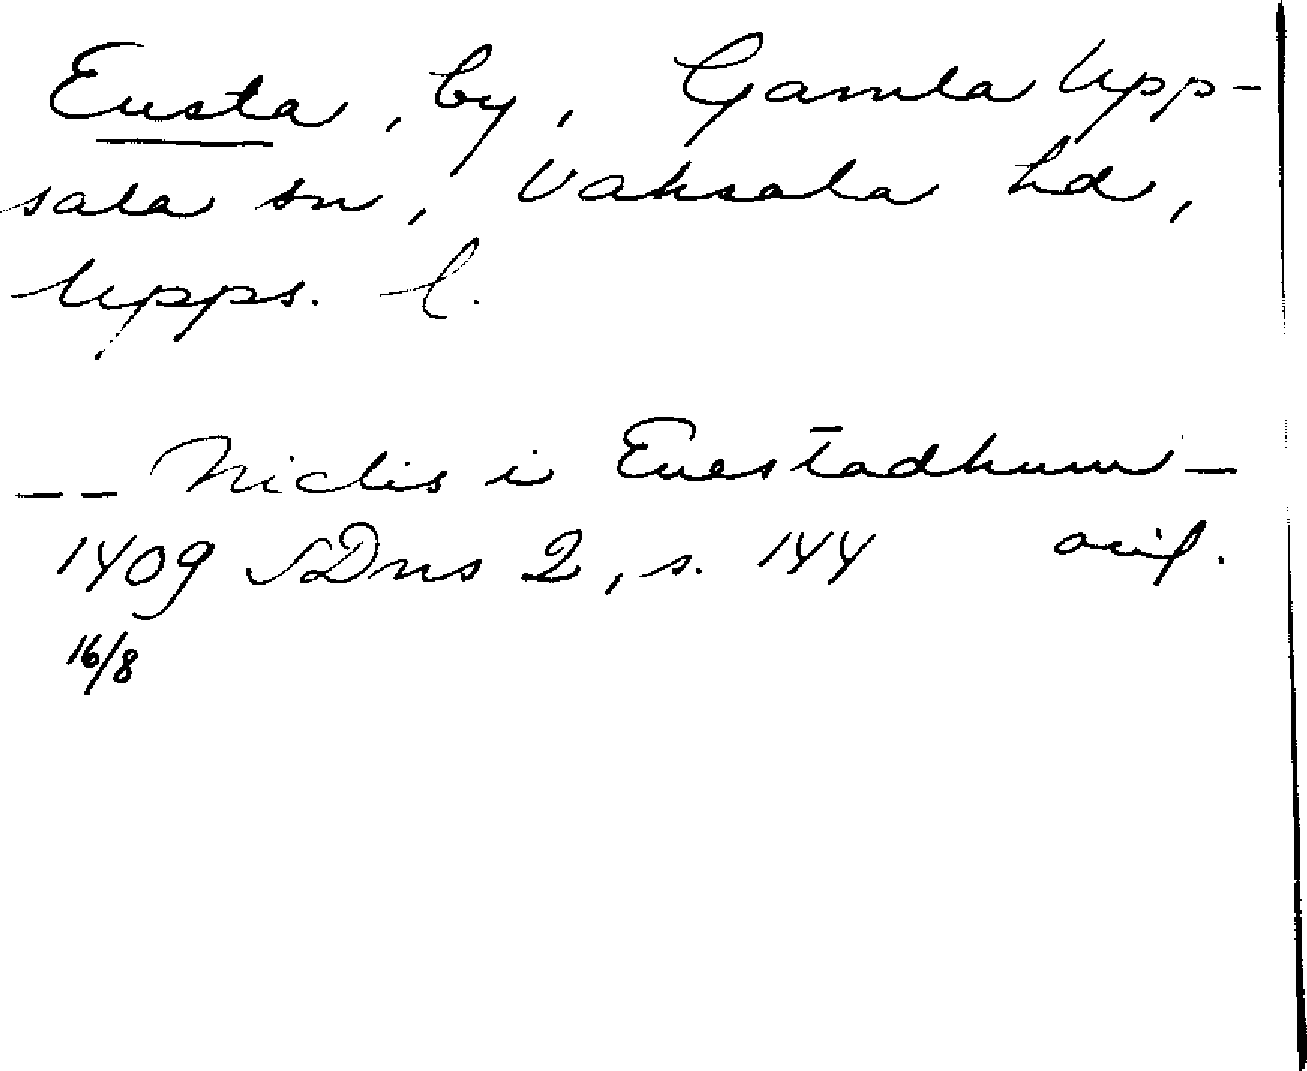 Ensta, by, Gamla Upp-
sala sn, Vaksala hd,
Upps. l.
-- Niclis i Enestadhum -
1409 SDns 2, s. 144 avil.
16/8